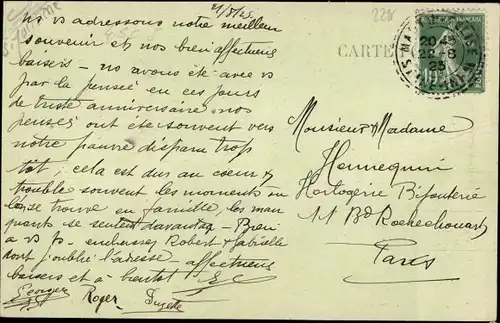 21/8/25
228
CARTE
ns vs adressons notre meilleur
souvenir et nos bien affectueux
baisers - ns avons été avec vs
par la pensée en ces jours
de triste anniversaire nos
pensées ont été souvent vers
notre pauvre disparu trop
tôt; cela est dur au coeur et
trouble souvent les moments où
l'on se trouve en famille, les man
quants se sentent davantage - Bien
à vs Ps. embrassez Robert Gabrielle
dont j'oublie l'adresse affectueux
baisers et à bientôt EC
Georges Roger Suzette
Monsieur Madame
Hennequin
Horlogerie Bijouterie
11 Bd Rochechouart
Paris
FRANÇAISE
22-8